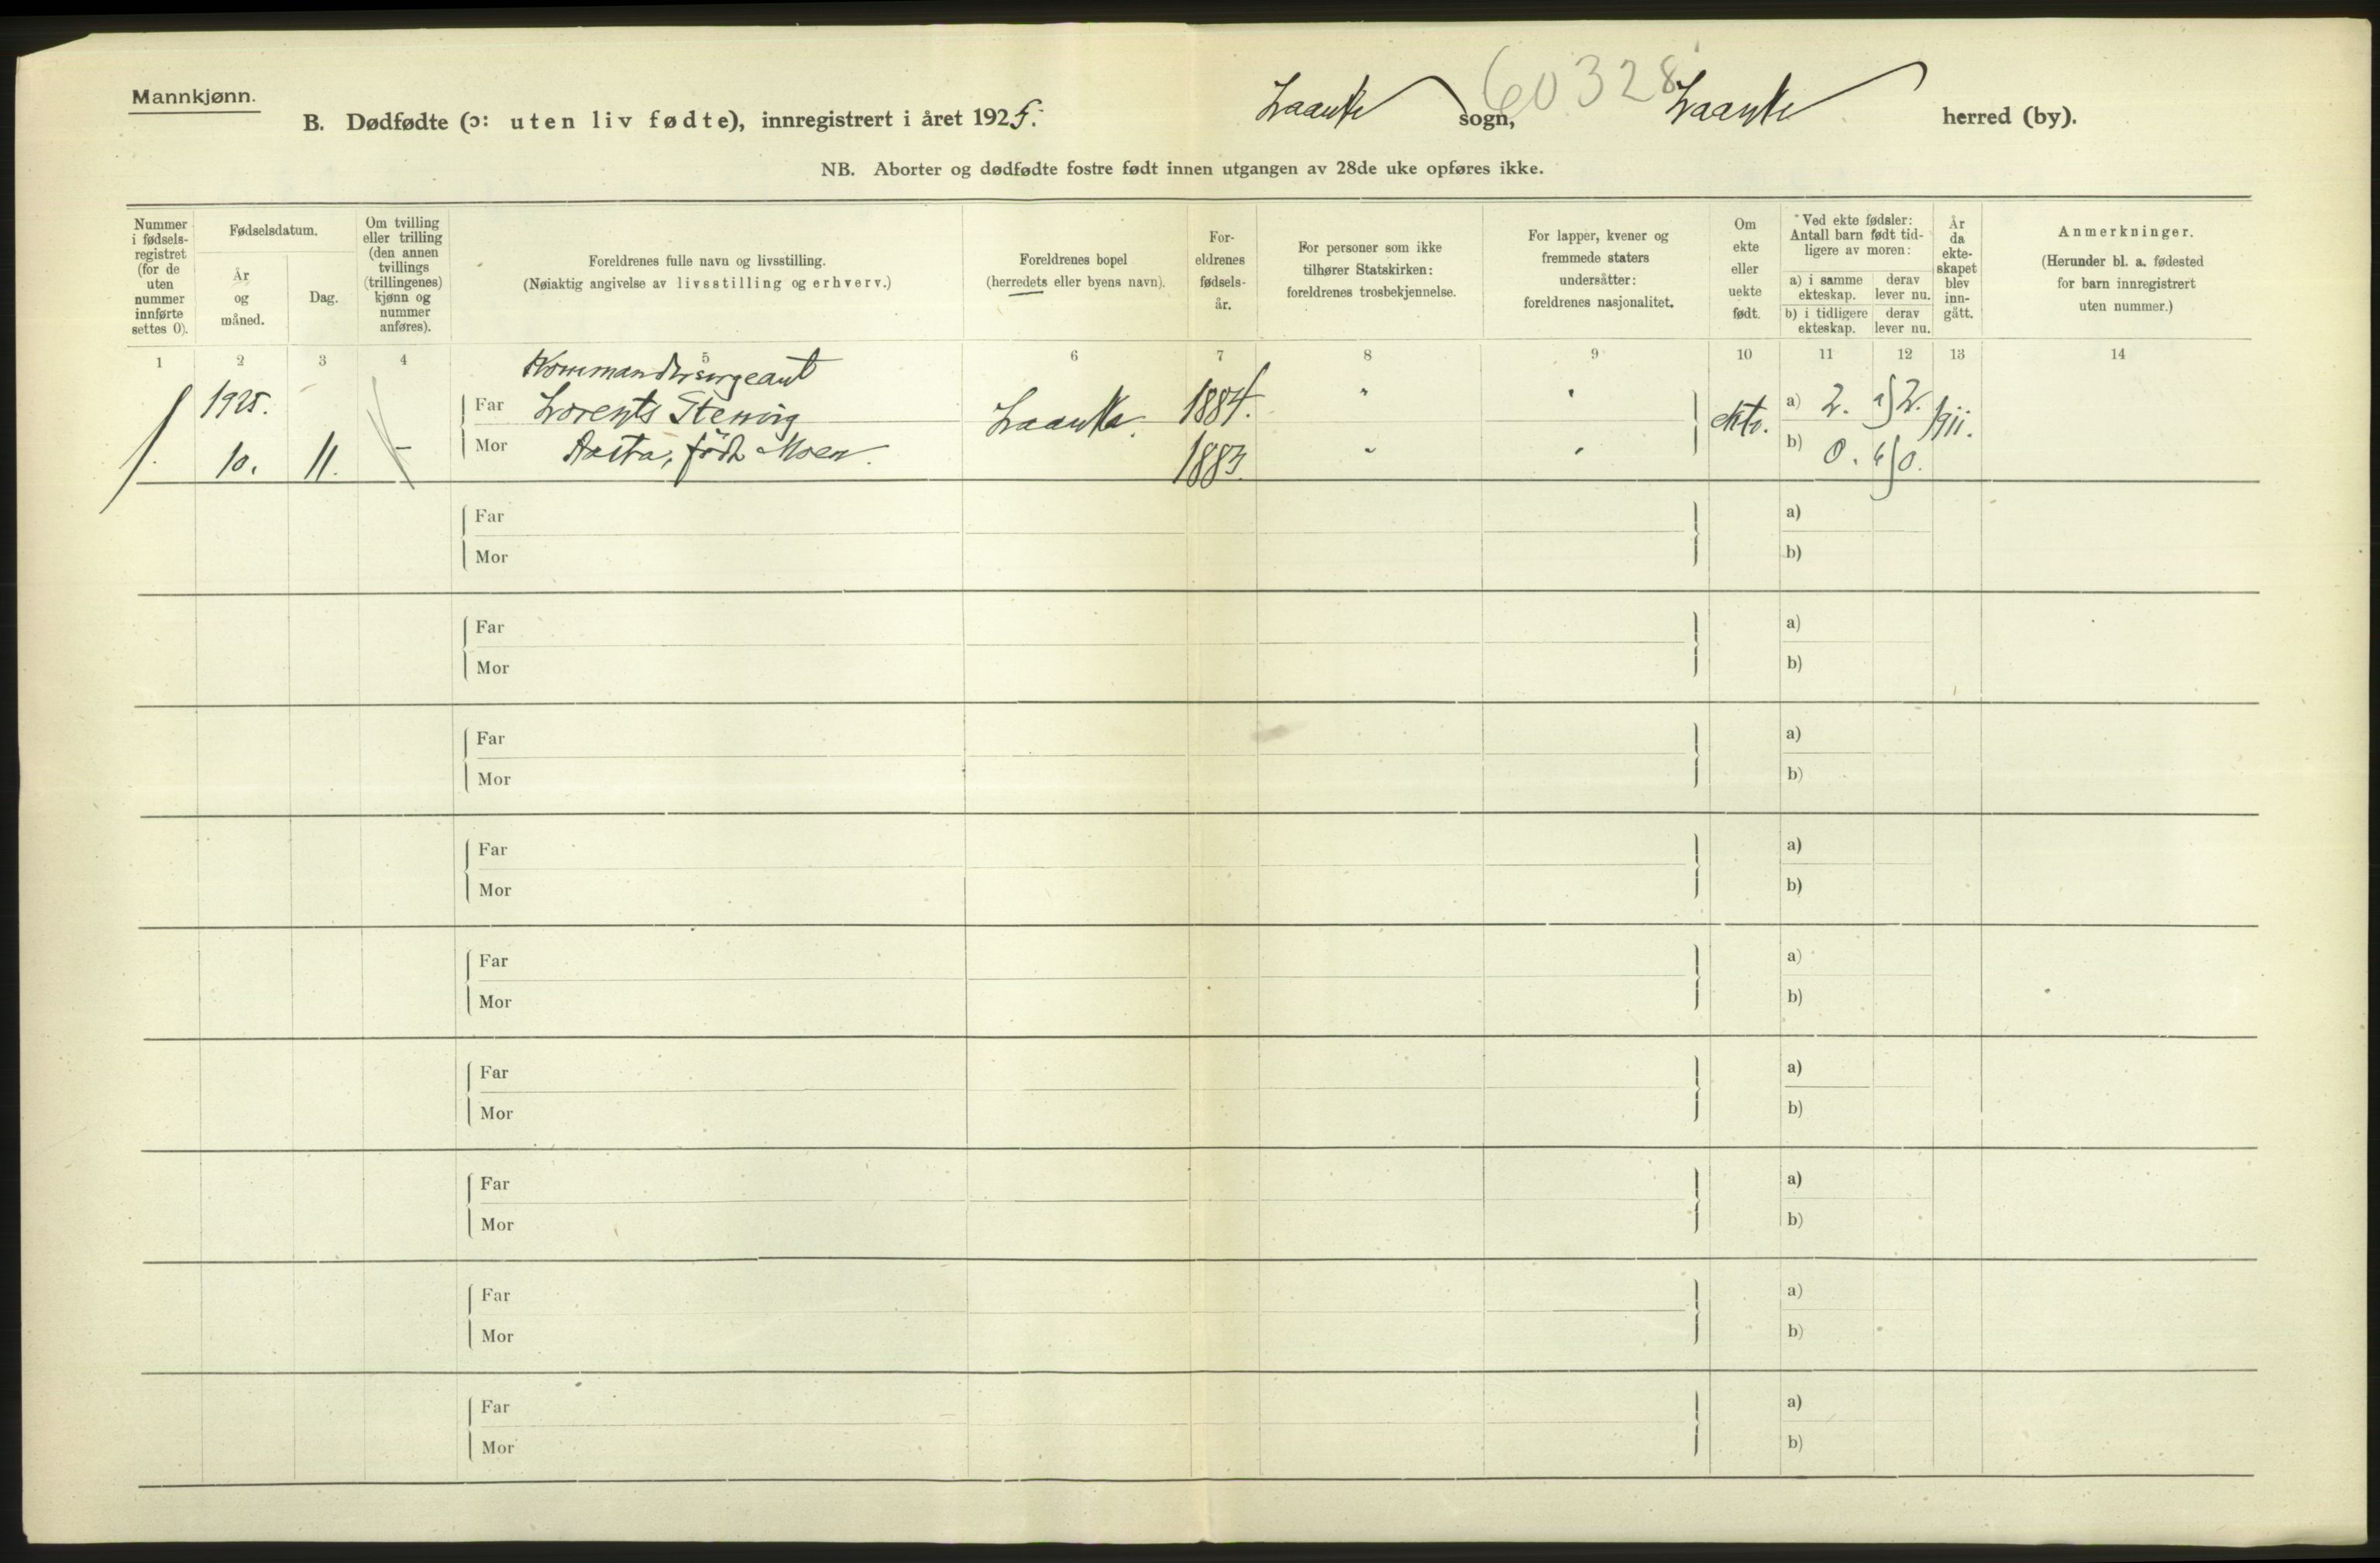 Mannkjønn.
60328
B. Dødfødte (ɔ: uten liv fødte), innregistrert i året 1925. Laanke sogn, Laanke herred (by).
NB. Aborter og dødfødte fostre født innen utgangen av 28de uke opføres ikke.
Nummer i fødsels- registret (for de uten nummer innførte settes 0).
Fødselsdatum.
År og måned.
Dag.
Om tvilling eller trilling (den annen tvillings (trillingenes) kjønn og nummer anføres).
Foreldrenes fulle navn og livsstilling.
(Nøiaktig angivelse av livsstilling og erhverv.)
Foreldrenes bopel
(herredets eller byens navn).
For- eldrenes fødsels- år.
For personer som ikke tilhører Statskirken: foreldrenes trosbekjennelse.
For lapper, kvener og fremmede staters undersåtter: foreldrenes nasjonalitet.
Om ekte eller uekte født.
Ved ekte fødsler: Antall barn født tid- ligere av moren:
a) i samme ekteskap. derav lever nu.
b) i tidligere ekteskap. derav lever nu.
År da ekte- skapet blev inn- gått.
Anmerkninger.
(Herunder bl. a. fødested for barn innregistrert uten nummer.)
1 2 3 4 5 6 7 8 9 10 11 12 13 14
Kommandersergeant
1925. Far Lorents Stenvig Laanke 1884. " " ekte. a) 2. a) 2. 1911.
1. 10. 11. - Mor Aasta, född Moen. 1883. " " b) 0. b) 0.
Far a)
Mor b)
Far a)
Mor b)
Far a)
Mor b)
Far a)
Mor b)
Far a)
Mor b)
Far a)
Mor b)
Far a)
Mor b)
Far a)
Mor b)
Far a)
Mor b)